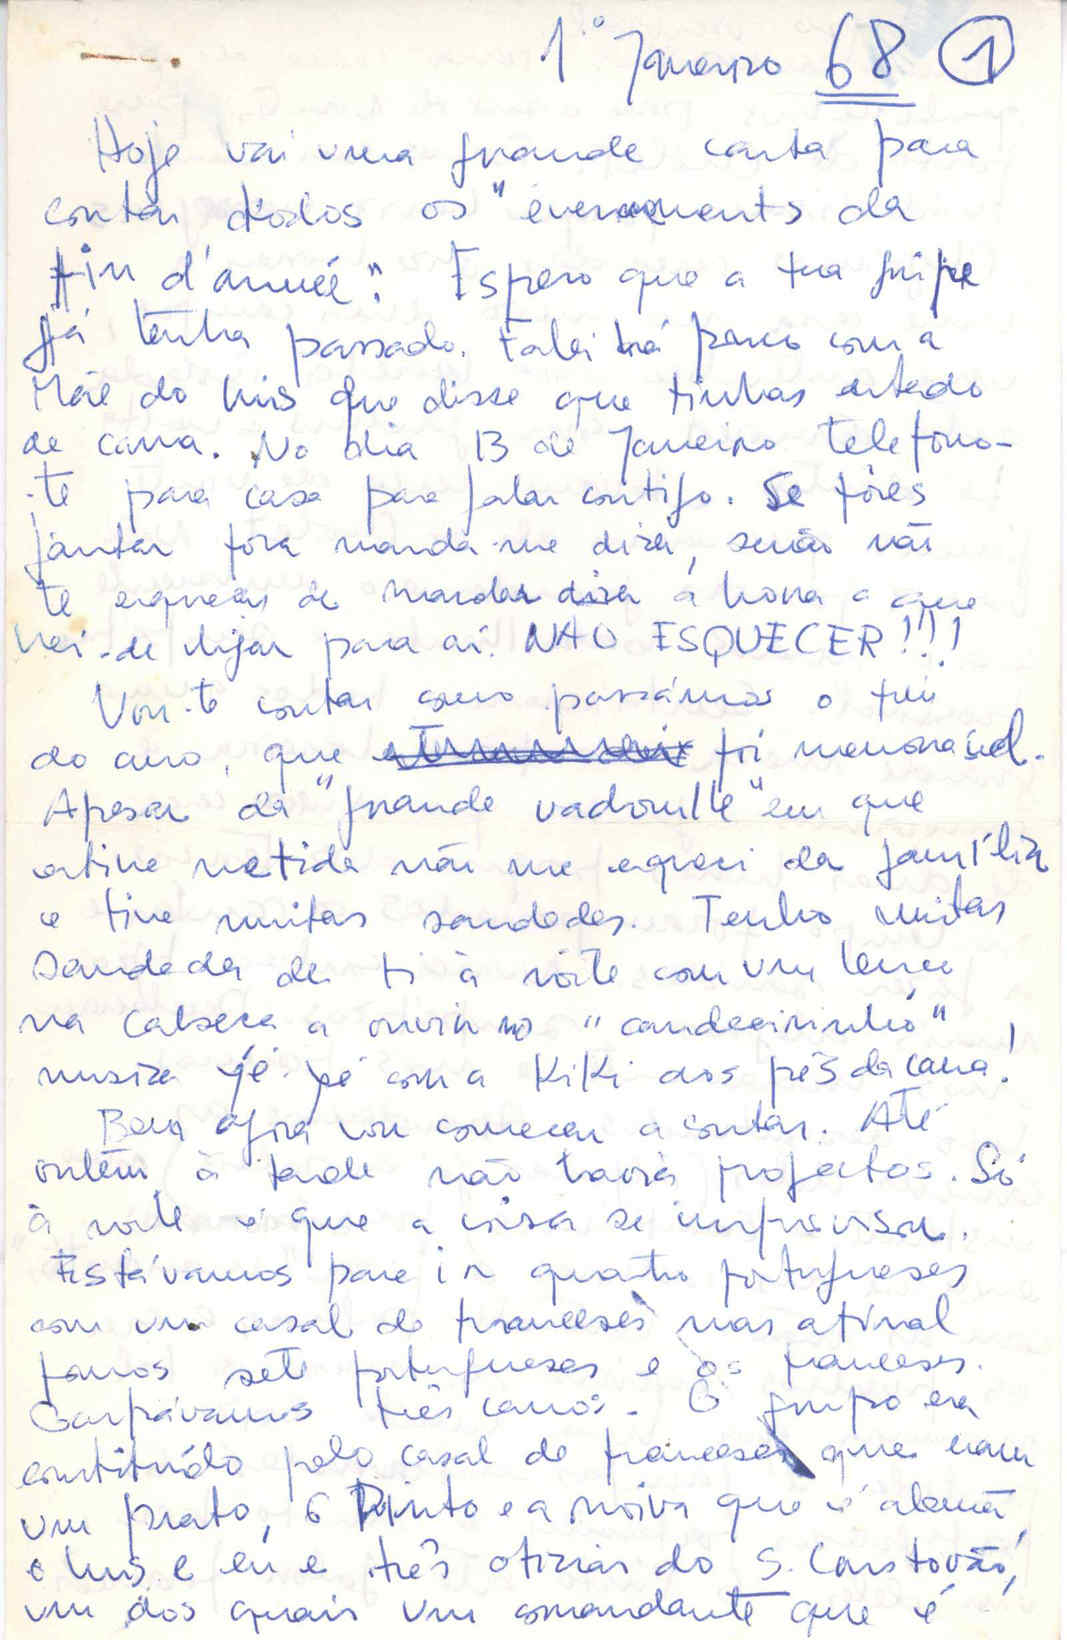 1º Janeiro 68 1
Hoje vai uma grande carta para
contar todos os "évenements da
fin d'année". Espero que a tua gripe
já tenha passado. Falei há pouco com a
Mãe do Luis que disse que tinhas estado
de cama. No dia 13 de Janeiro telefono-
-te para casa para falar contigo. Se fôres
jantar fora manda-me dizer, senão não
te esqueças de mandar dizer a hora a que
hei-de ligar para aí. NÃO ESQUECER!!!
Vou-te contar como passámos o fim
do ano, que foi memorável.
Apesar da "grande vadrouille" em que
estive metida não me esqueci da família
e tive muitas saudades. Tenho muitas
saudades de ti à noite com um lenço
na cabeça a ouvir no "candeeirinho"
musica yé-yé com a Kiki aos pés da cama!
Bem agora vou começar a contar. Até
ontem à tarde não havia projectos. Só
à noite é que a coisa se improvisou.
Estávamos para ir quatro portugueses
com um casal de franceses mas afinal
fomos sete portugueses e os franceses.
Ocupávamos três carros. O grupo era
constituído pelo casal de franceses que eram
um prato, o Pinto e a noiva que é alemã,
o Luis e eu e três oficiais do S. Cristovão,
um dos quais um comandante que é